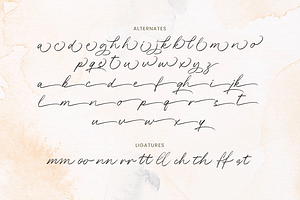 ALTERNATES
a c d e g h h i j j k k l l m n o
p q s t u u w w x y z
a b c d e f g h i j k
l m n o p q r s t
u v w x y
LIGATURES
mm oo nn rr tt ll ch th ff at